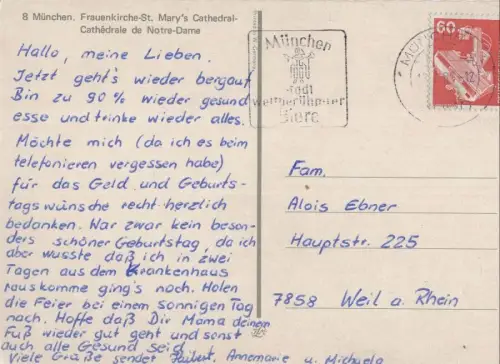 8 München. Frauenkirche-St. Mary's Cathedral-
Cathédrale de Notre-Dame
Hallo, meine Lieben.
Jetzt geht's wieder bergauf
Bin zu 90 % wieder gesund
esse und trinke wieder alles.
Möchte mich (da ich es beim
telefonieren vergessen habe)
für das Geld und Geburts-
tagswünsche recht herzlich
bedanken. War zwar kein beson-
ders schöner Geburtstag, da ich
aber wusste daß ich in zwei
Tagen aus dem Krankenhaus
rauskomme ging's noch. Holen
die Feier bei einem sonnigen Tag
nach. Hoffe daß Dir Mama deinem
Fuß wieder gut geht und sonst
auch alle Gesund seid.
Viele Grüße sendet Hubert, Annemarie u. Michaela
München
Stadt
weltberühmter
Biere
60
Fam.
Alois Ebner
Hauptstr. 225
7858 Weil a. Rhein